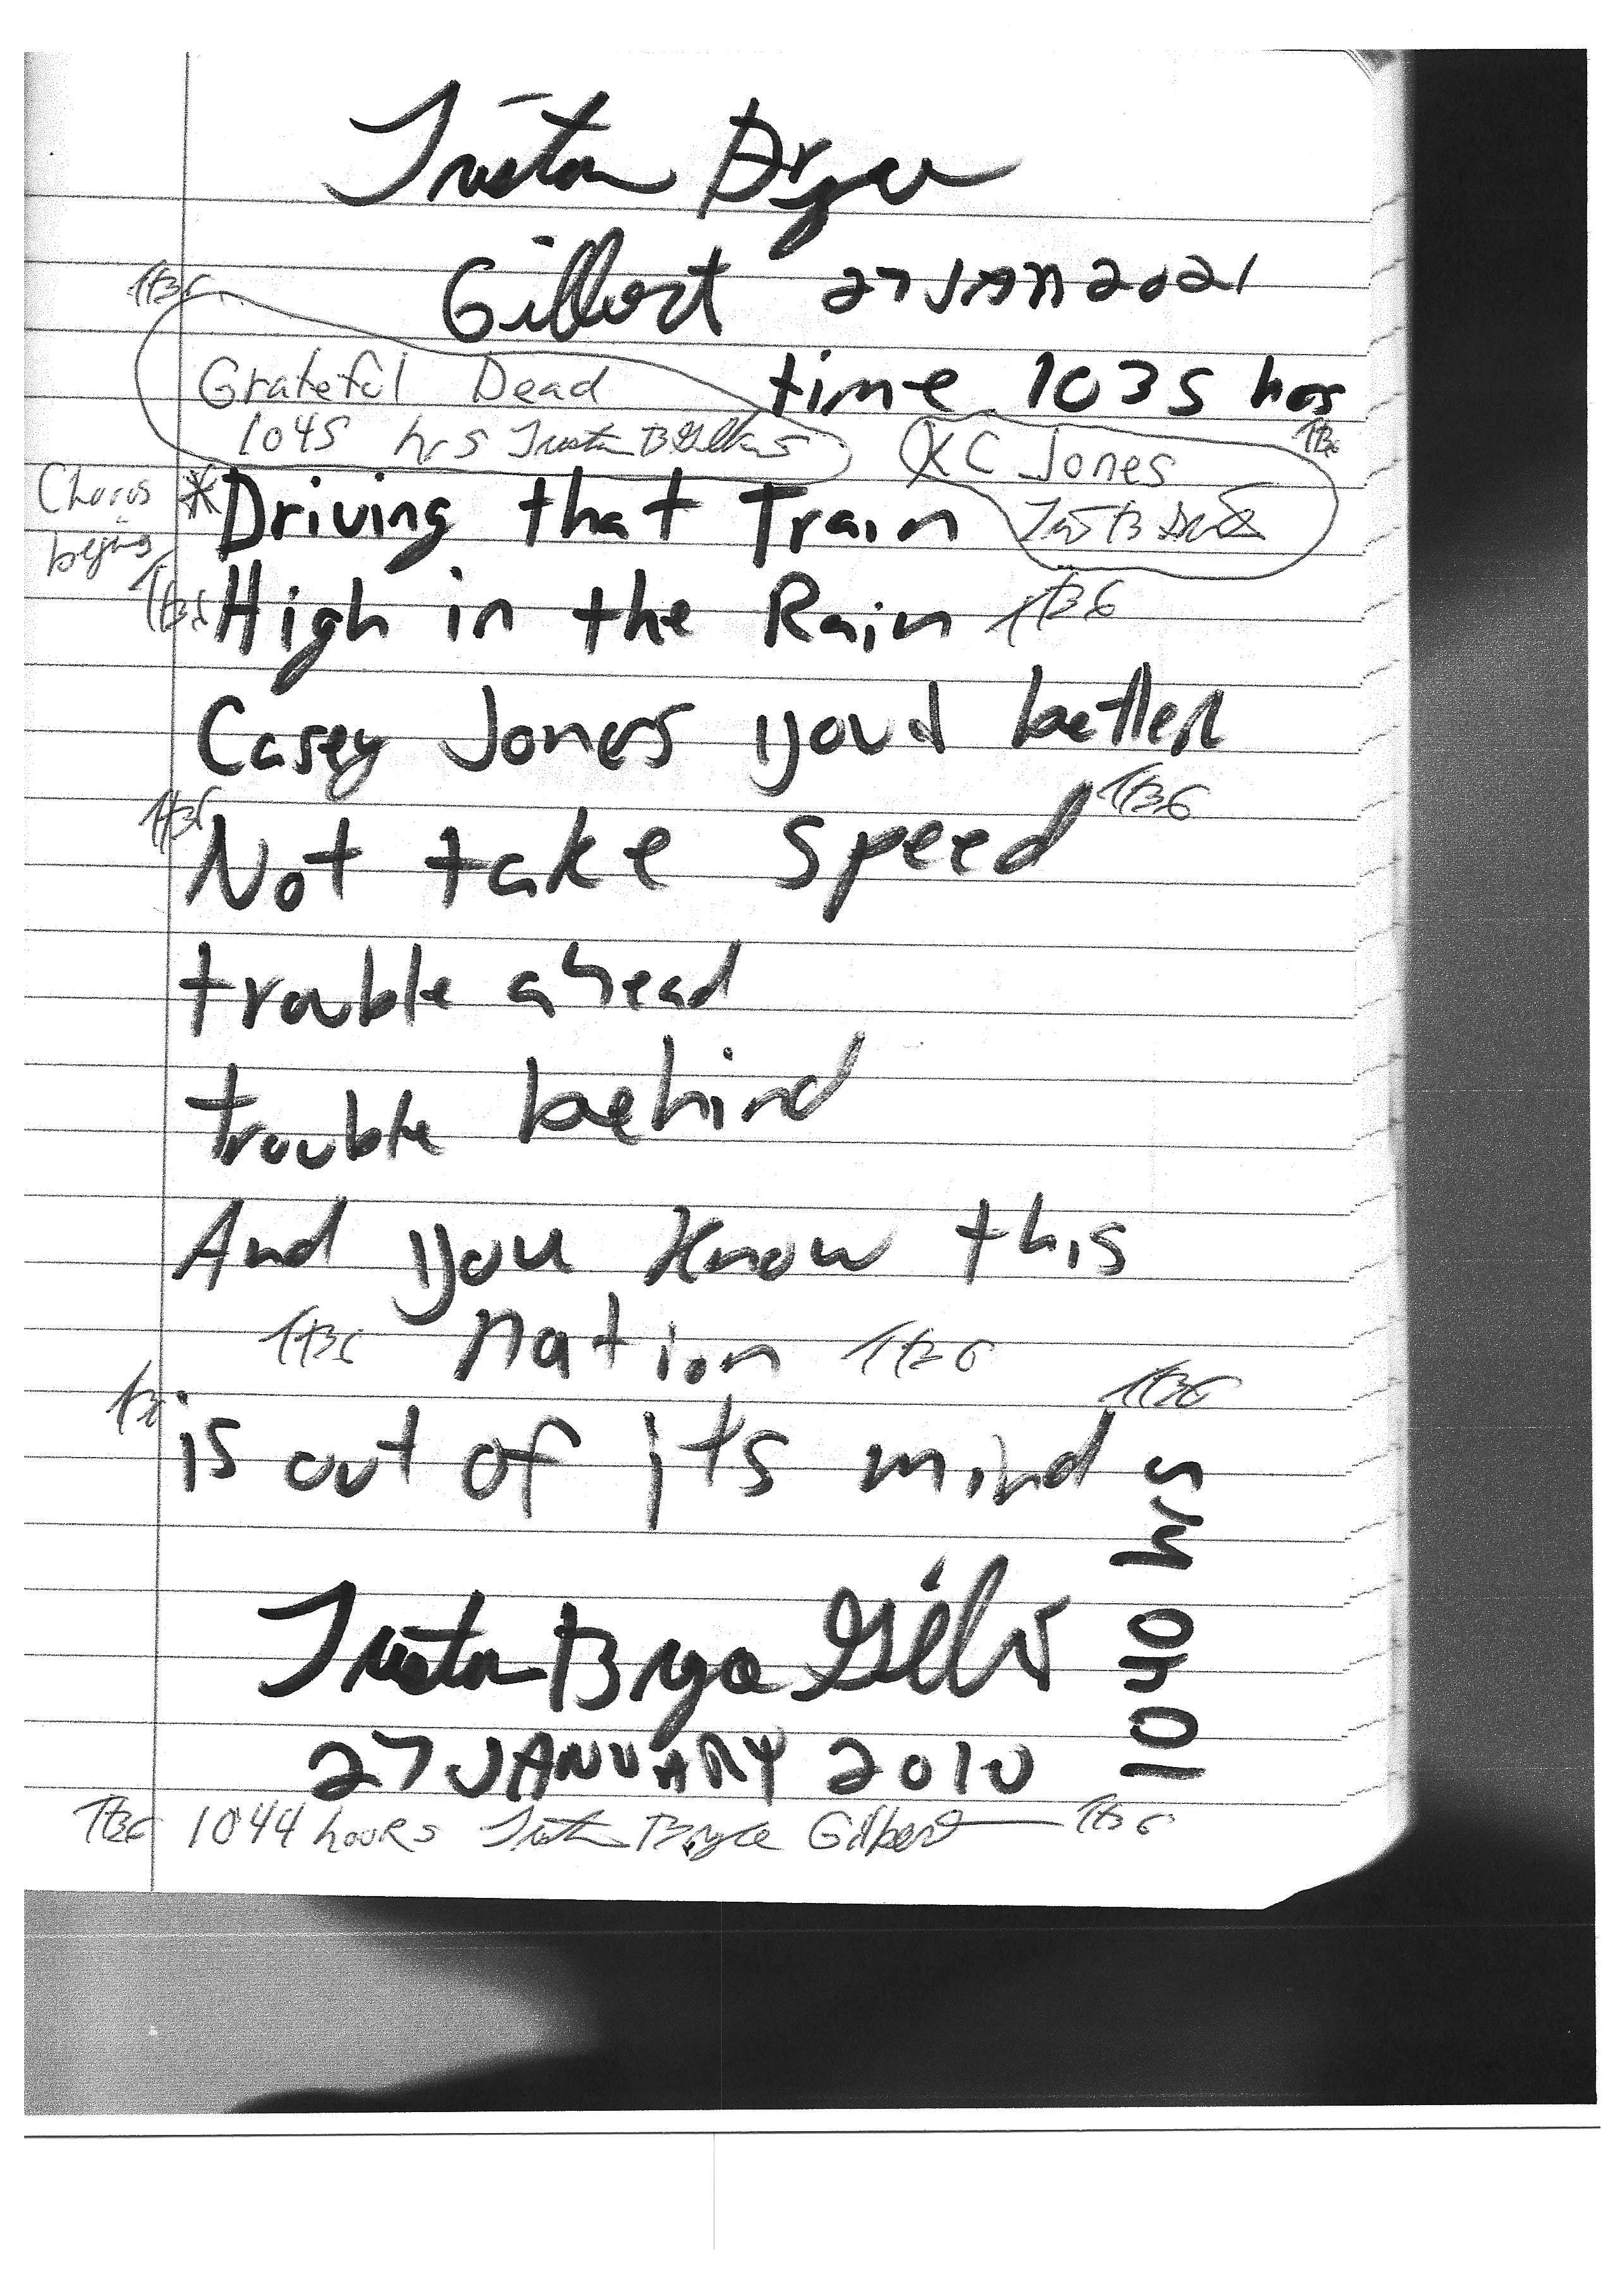 Triston Bryce
Gilbert 27 JAN 2021
TBG
Grateful Dead time 1035 hrs
1045 hrs Triston B Gilbert
TBG
KC Jones
Chorus
begins
*Driving that Train
TBG High in the Rain TBG
Casey Jones you'd better
TBG Not take speed TBG
trouble ahead
trouble behind
And you know this
TBG nation TBG
TBG is out of its mind TBG
1040 hrs
Triston Bryce Gilbert
27 JANUARY 2010
TBG 1044 hours Triston Bryce Gilbert TBG